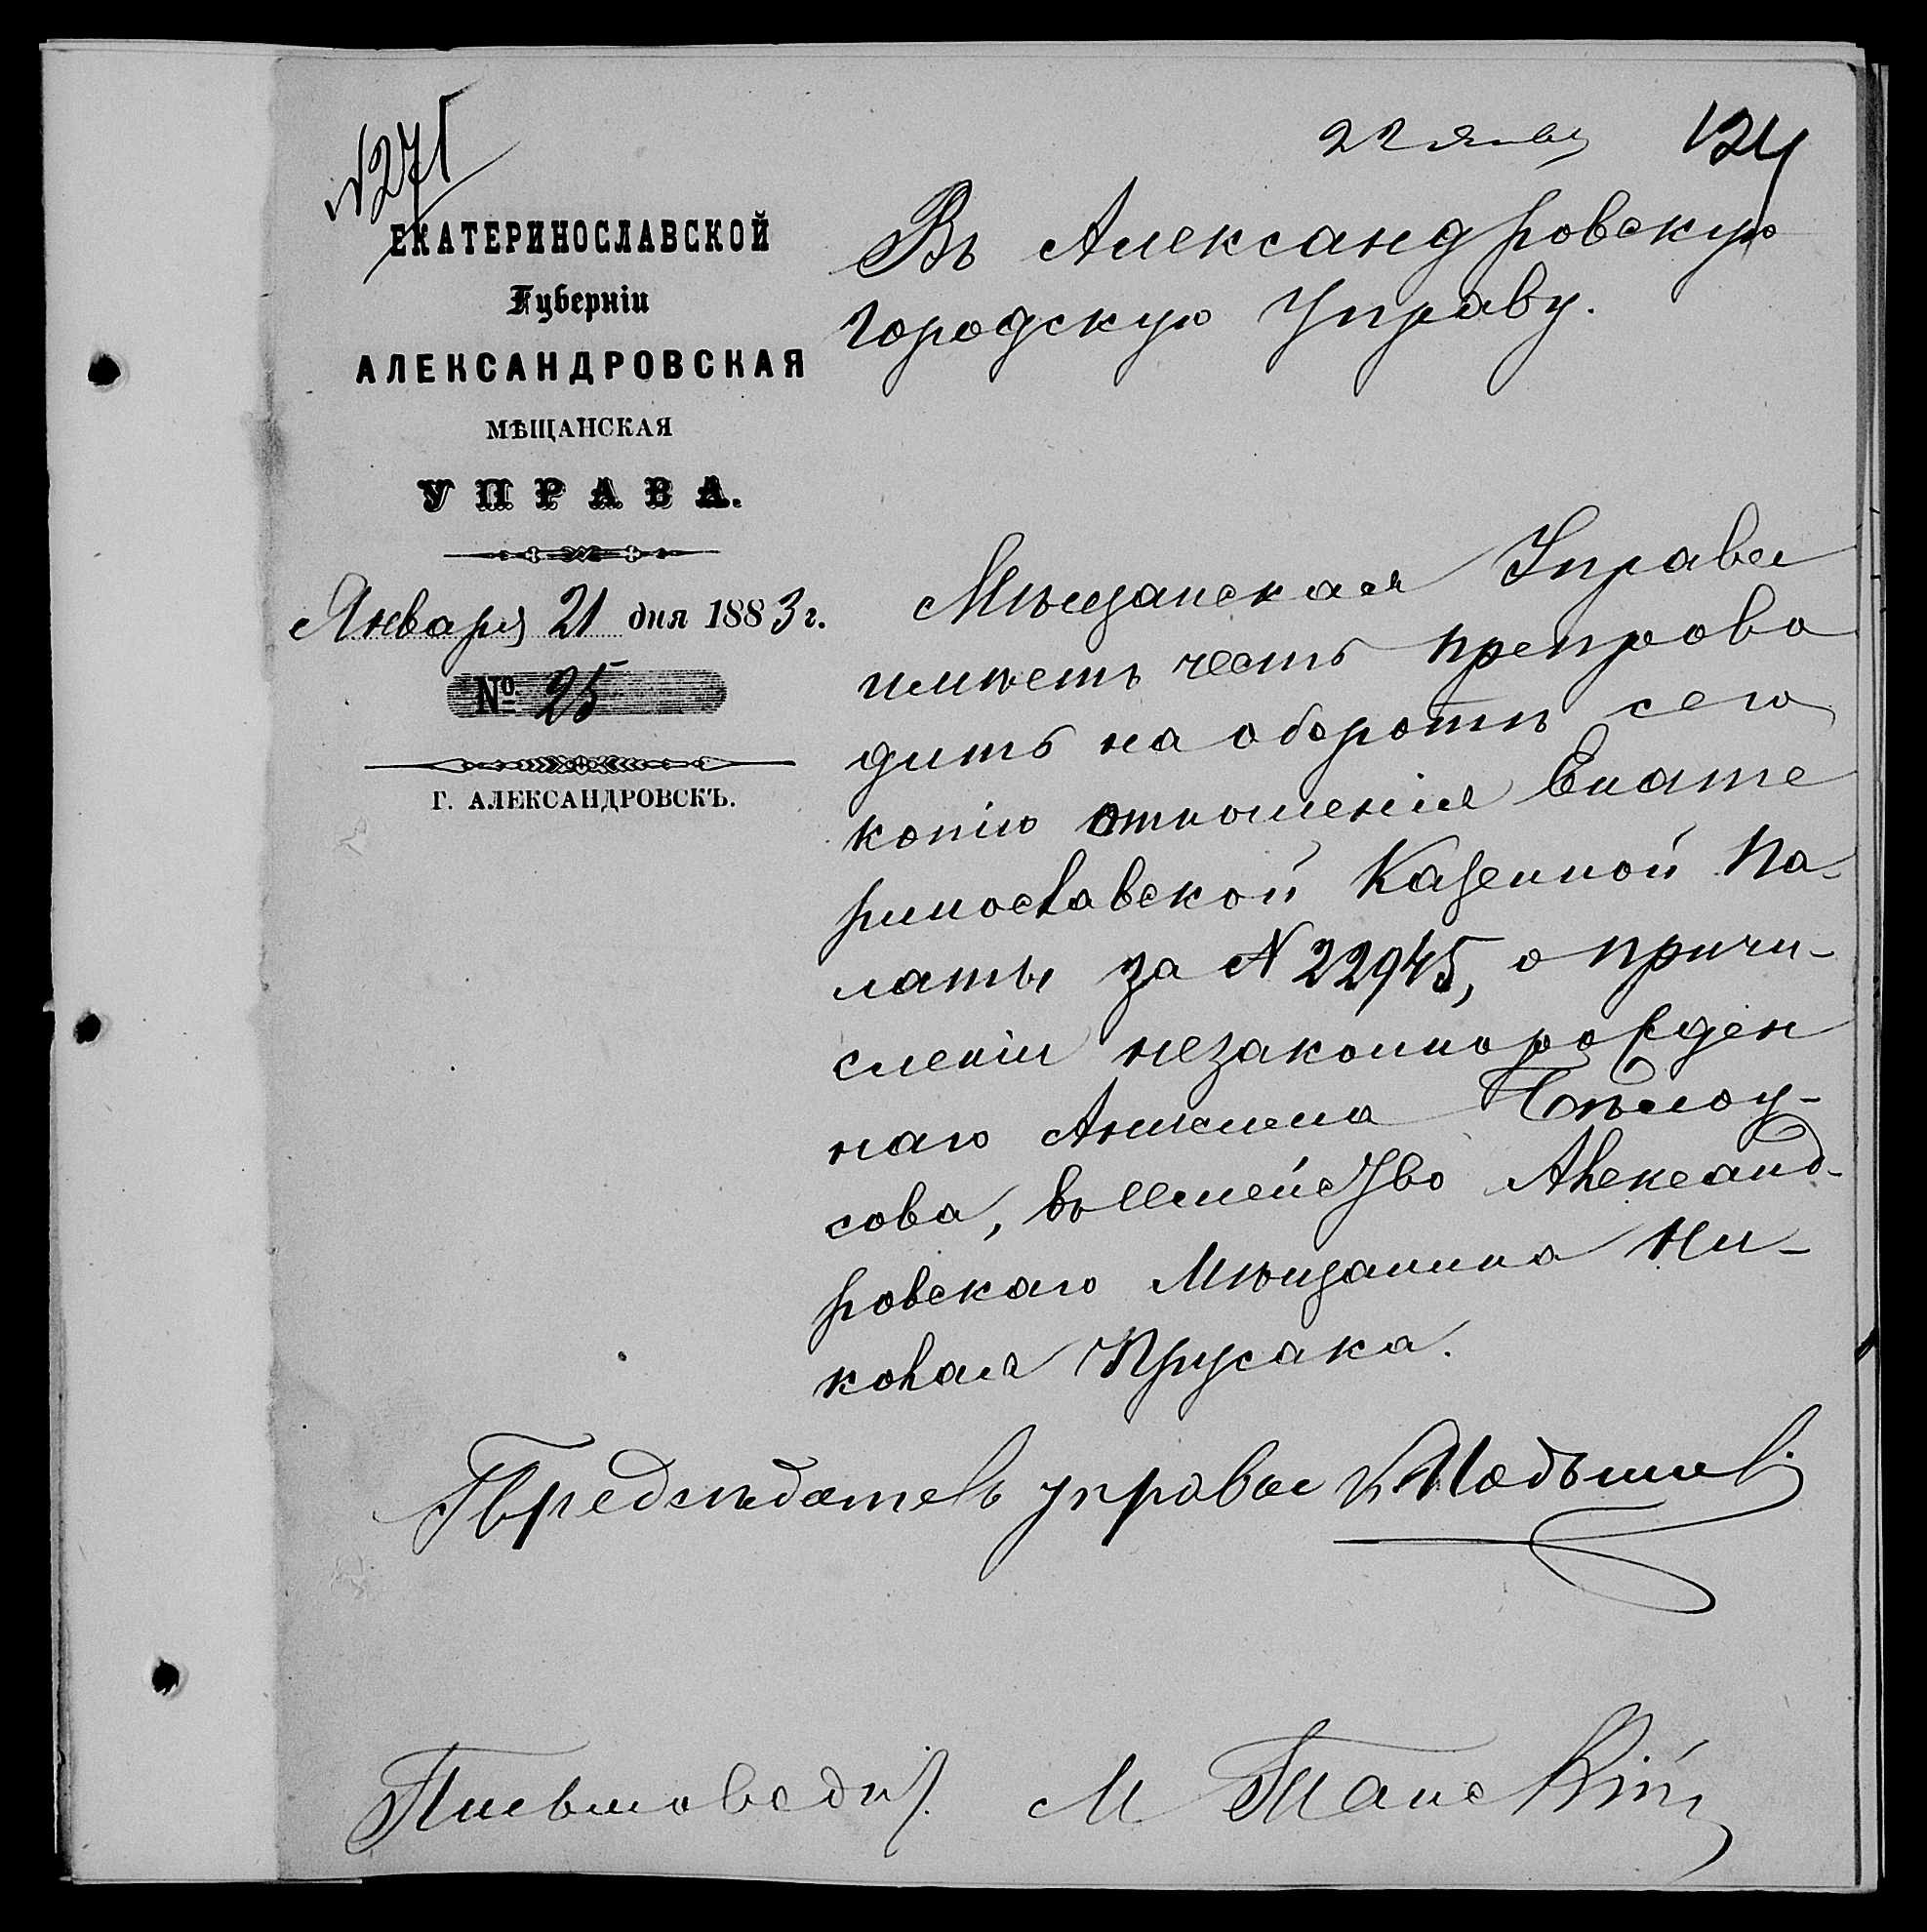 № 271
22 янв
124
ЕКАТЕРИНОСЛАВСКОЙ
Губерніи
АЛЕКСАНДРОВСКАЯ
МѢЩАНСКАЯ
УПРАВА.
Января 21 дня 1883 г.
№ 25
Г. АЛЕКСАНДРОВСКЪ.
Въ Александровскую
городскую Управу.
Мѣщанская Управа
имѣетъ честь препрово
дить на оборотѣ сего
копію отношенія Екате
ринославской Казенной Па-
латы за № 22945, о причи-
сленіи незаконнорожден
наго Анисима Бѣлоу-
сова, въ семейство Александ-
ровскаго Мѣщанина Ни-
колая Прусака.
Предсѣдатель управы
Письмоводит. М